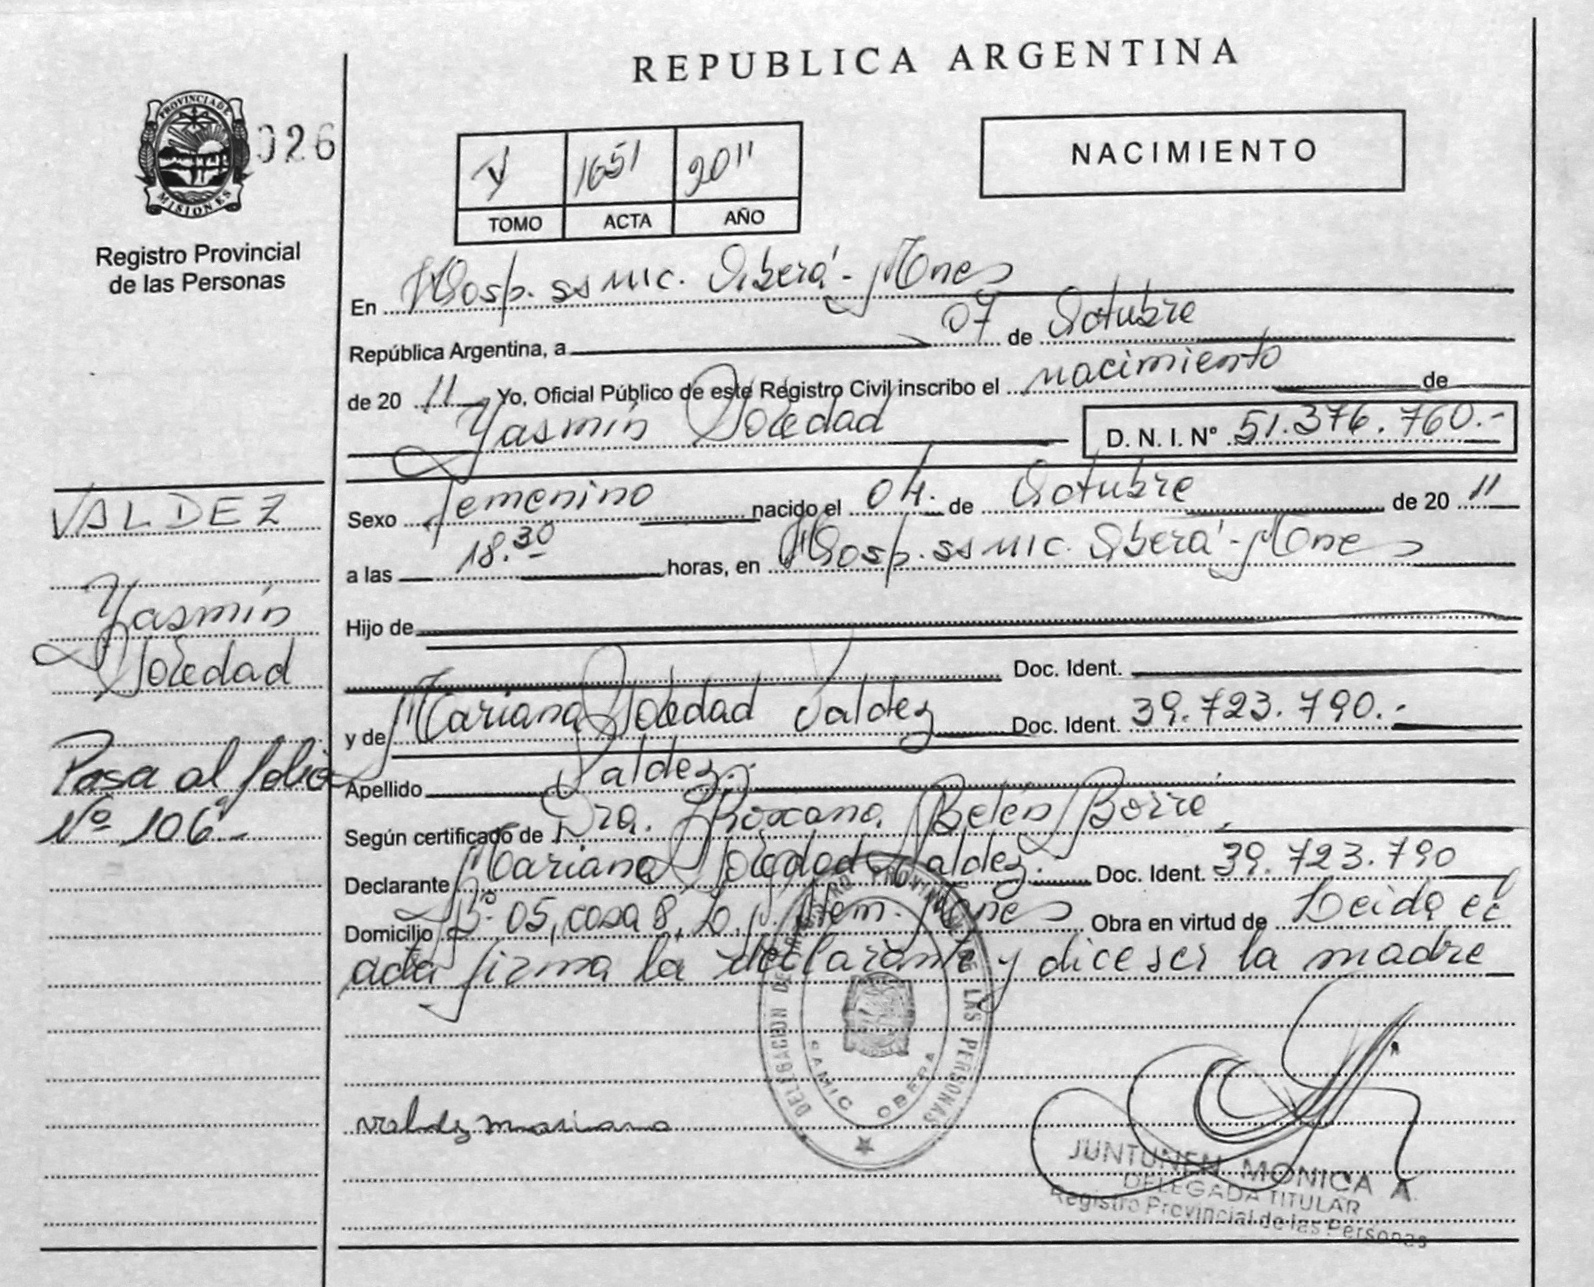 REPUBLICA ARGENTINA
PROVINCIA DE
MISIONES
026
Registro Provincial
de las Personas
V 1651 2011
TOMO ACTA AÑO
NACIMIENTO
En Hosp. SS MIC. Oberá - Mones
República Argentina, a 07 de Octubre
de 20 11 Yo, Oficial Público de este Registro Civil inscribo el nacimiento de
Yasmín Soledad D. N. I. Nº 51.376.760.-
Sexo femenino nacido el 04. de Octubre de 20 11
a las 18.30 horas, en Hosp. SS MIC. Oberá - Mones
Hijo de
Doc. Ident.
y de Mariana Soledad Valdez Doc. Ident. 39.723.790.-
Apellido Valdez.
Según certificado de Dra. Roxana Belén Borre
Declarante Mariana Soledad Valdez. Doc. Ident. 39.723.790
Domicilio Bº 05, casa 8, Mones Obra en virtud de Leida el
acta firma la declarante y dice ser la madre
VALDEZ
Yasmín
Soledad
Pasa al folio
Nº 106.-
Valdez Mariana
DELEGACION DEL REGISTRO PROVINCIAL DE LAS PERSONAS
SAMIC OBERA
JUNTUNEN MONICA A.
DELEGADA TITULAR
Registro Provincial de las Personas